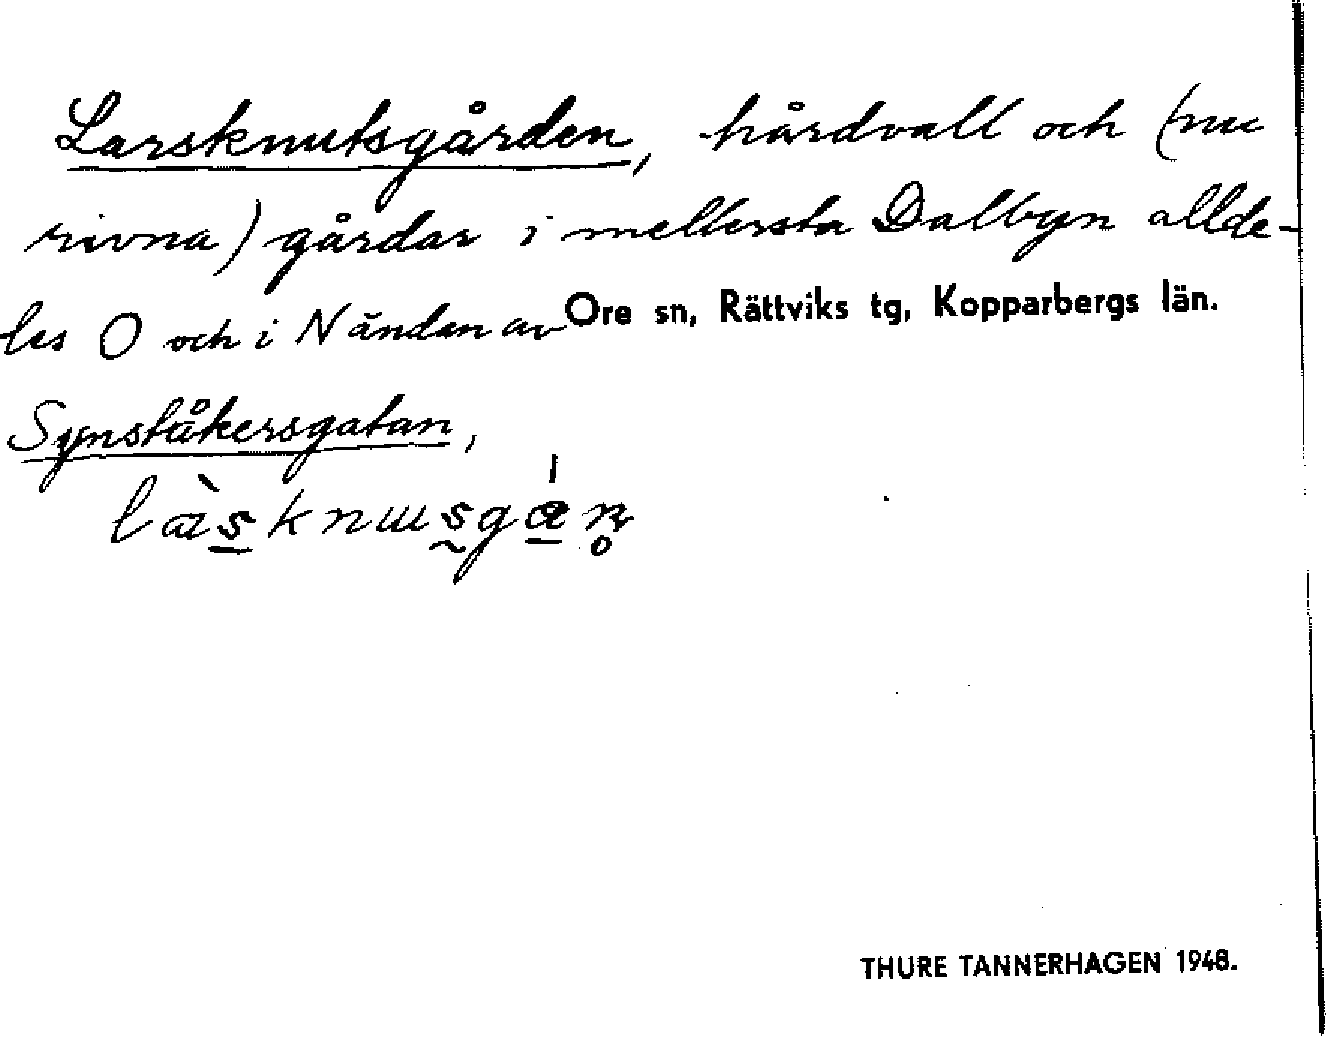 Larsknutsgården, hårdvall och (nu
rivna) gårdar i mellersta Dalbyn allde-
les O och i N änden av
Ore sn, Rättviks tg, Kopparbergs län.
Synståkersgatan,
THURE TANNERHAGEN 1948.